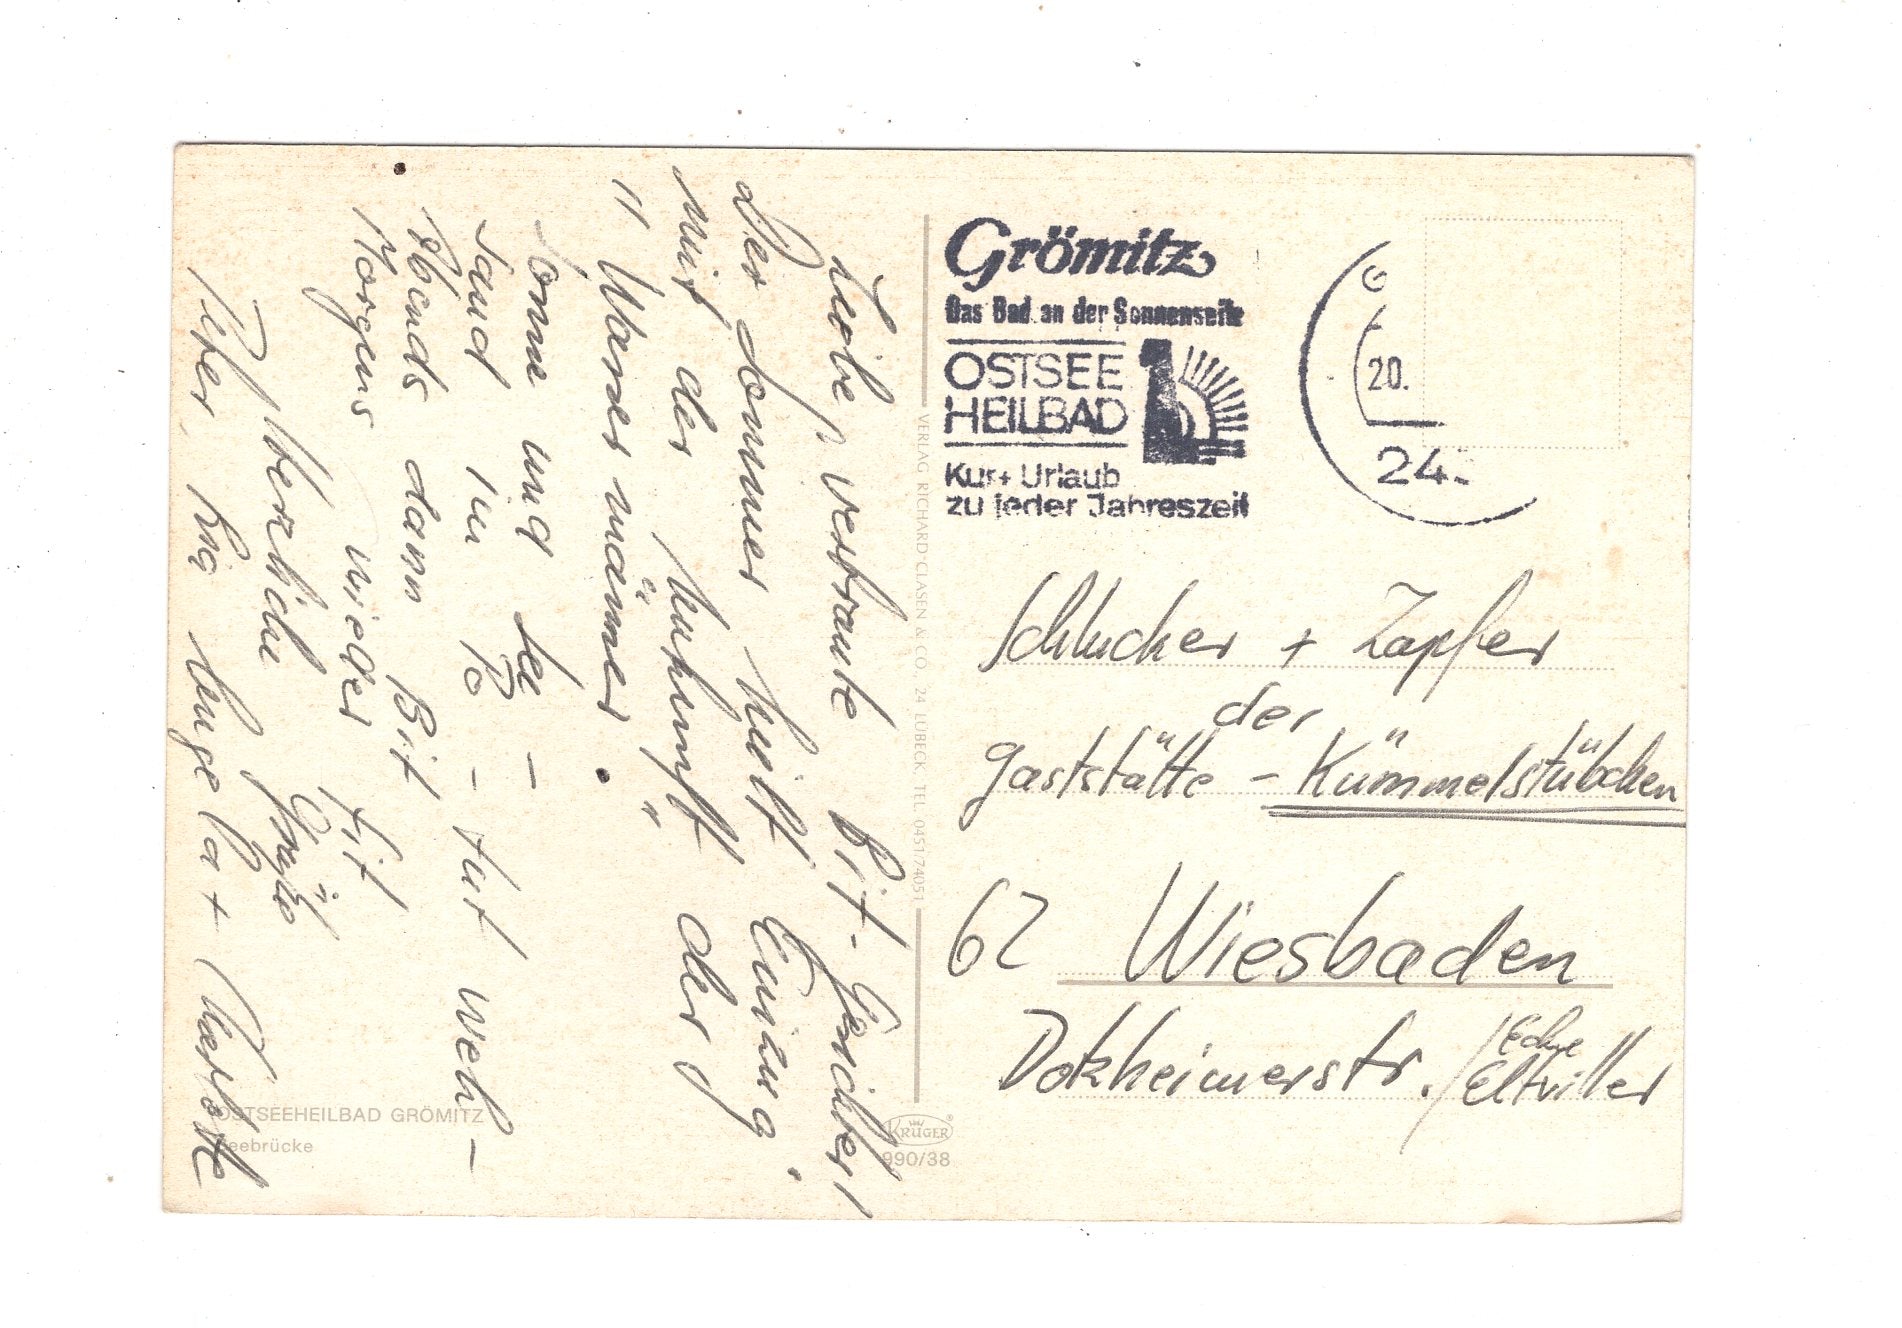 Liebe, vertraute Bit-Gesichter!
Der Sommer hielt Einzug
mit der Ankunft der
"Wassermänner".
Sonne und See -
Sand im Po - tut weh -
Abends dann Bit,
Morgens wieder fit
Herzliche Grüße
Peter, Angela +
Grömitz
Das Bad an der Sonnenseite
OSTSEE
HEILBAD
Kur + Urlaub
zu jeder Jahreszeit
20.
24
VERLAG RICHARD CLASEN & CO., 24 LÜBECK, TEL. 0451/74051
Schlucker + Zapfer
der
Gaststätte - Kümmelstübchen
62 Wiesbaden
Dotzheimerstr. / Ecke
Eltviller
OSTSEEHEILBAD GRÖMITZ
Seebrücke
KRÜGER
990/38